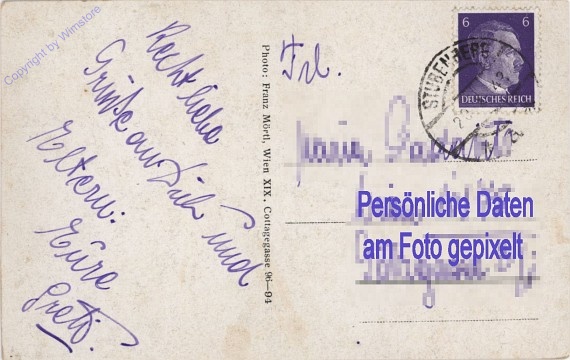 Copyright by Wimstore
Recht liebe
Grüße an Dich und
Eltern.
Eure
Greti.
Photo: Franz Mörtl, Wien XIX. Cottagegasse 96—94
Frl.
6 6
DEUTSCHES REICH
STUBENBERG
Persönliche Daten
am Foto gepixelt